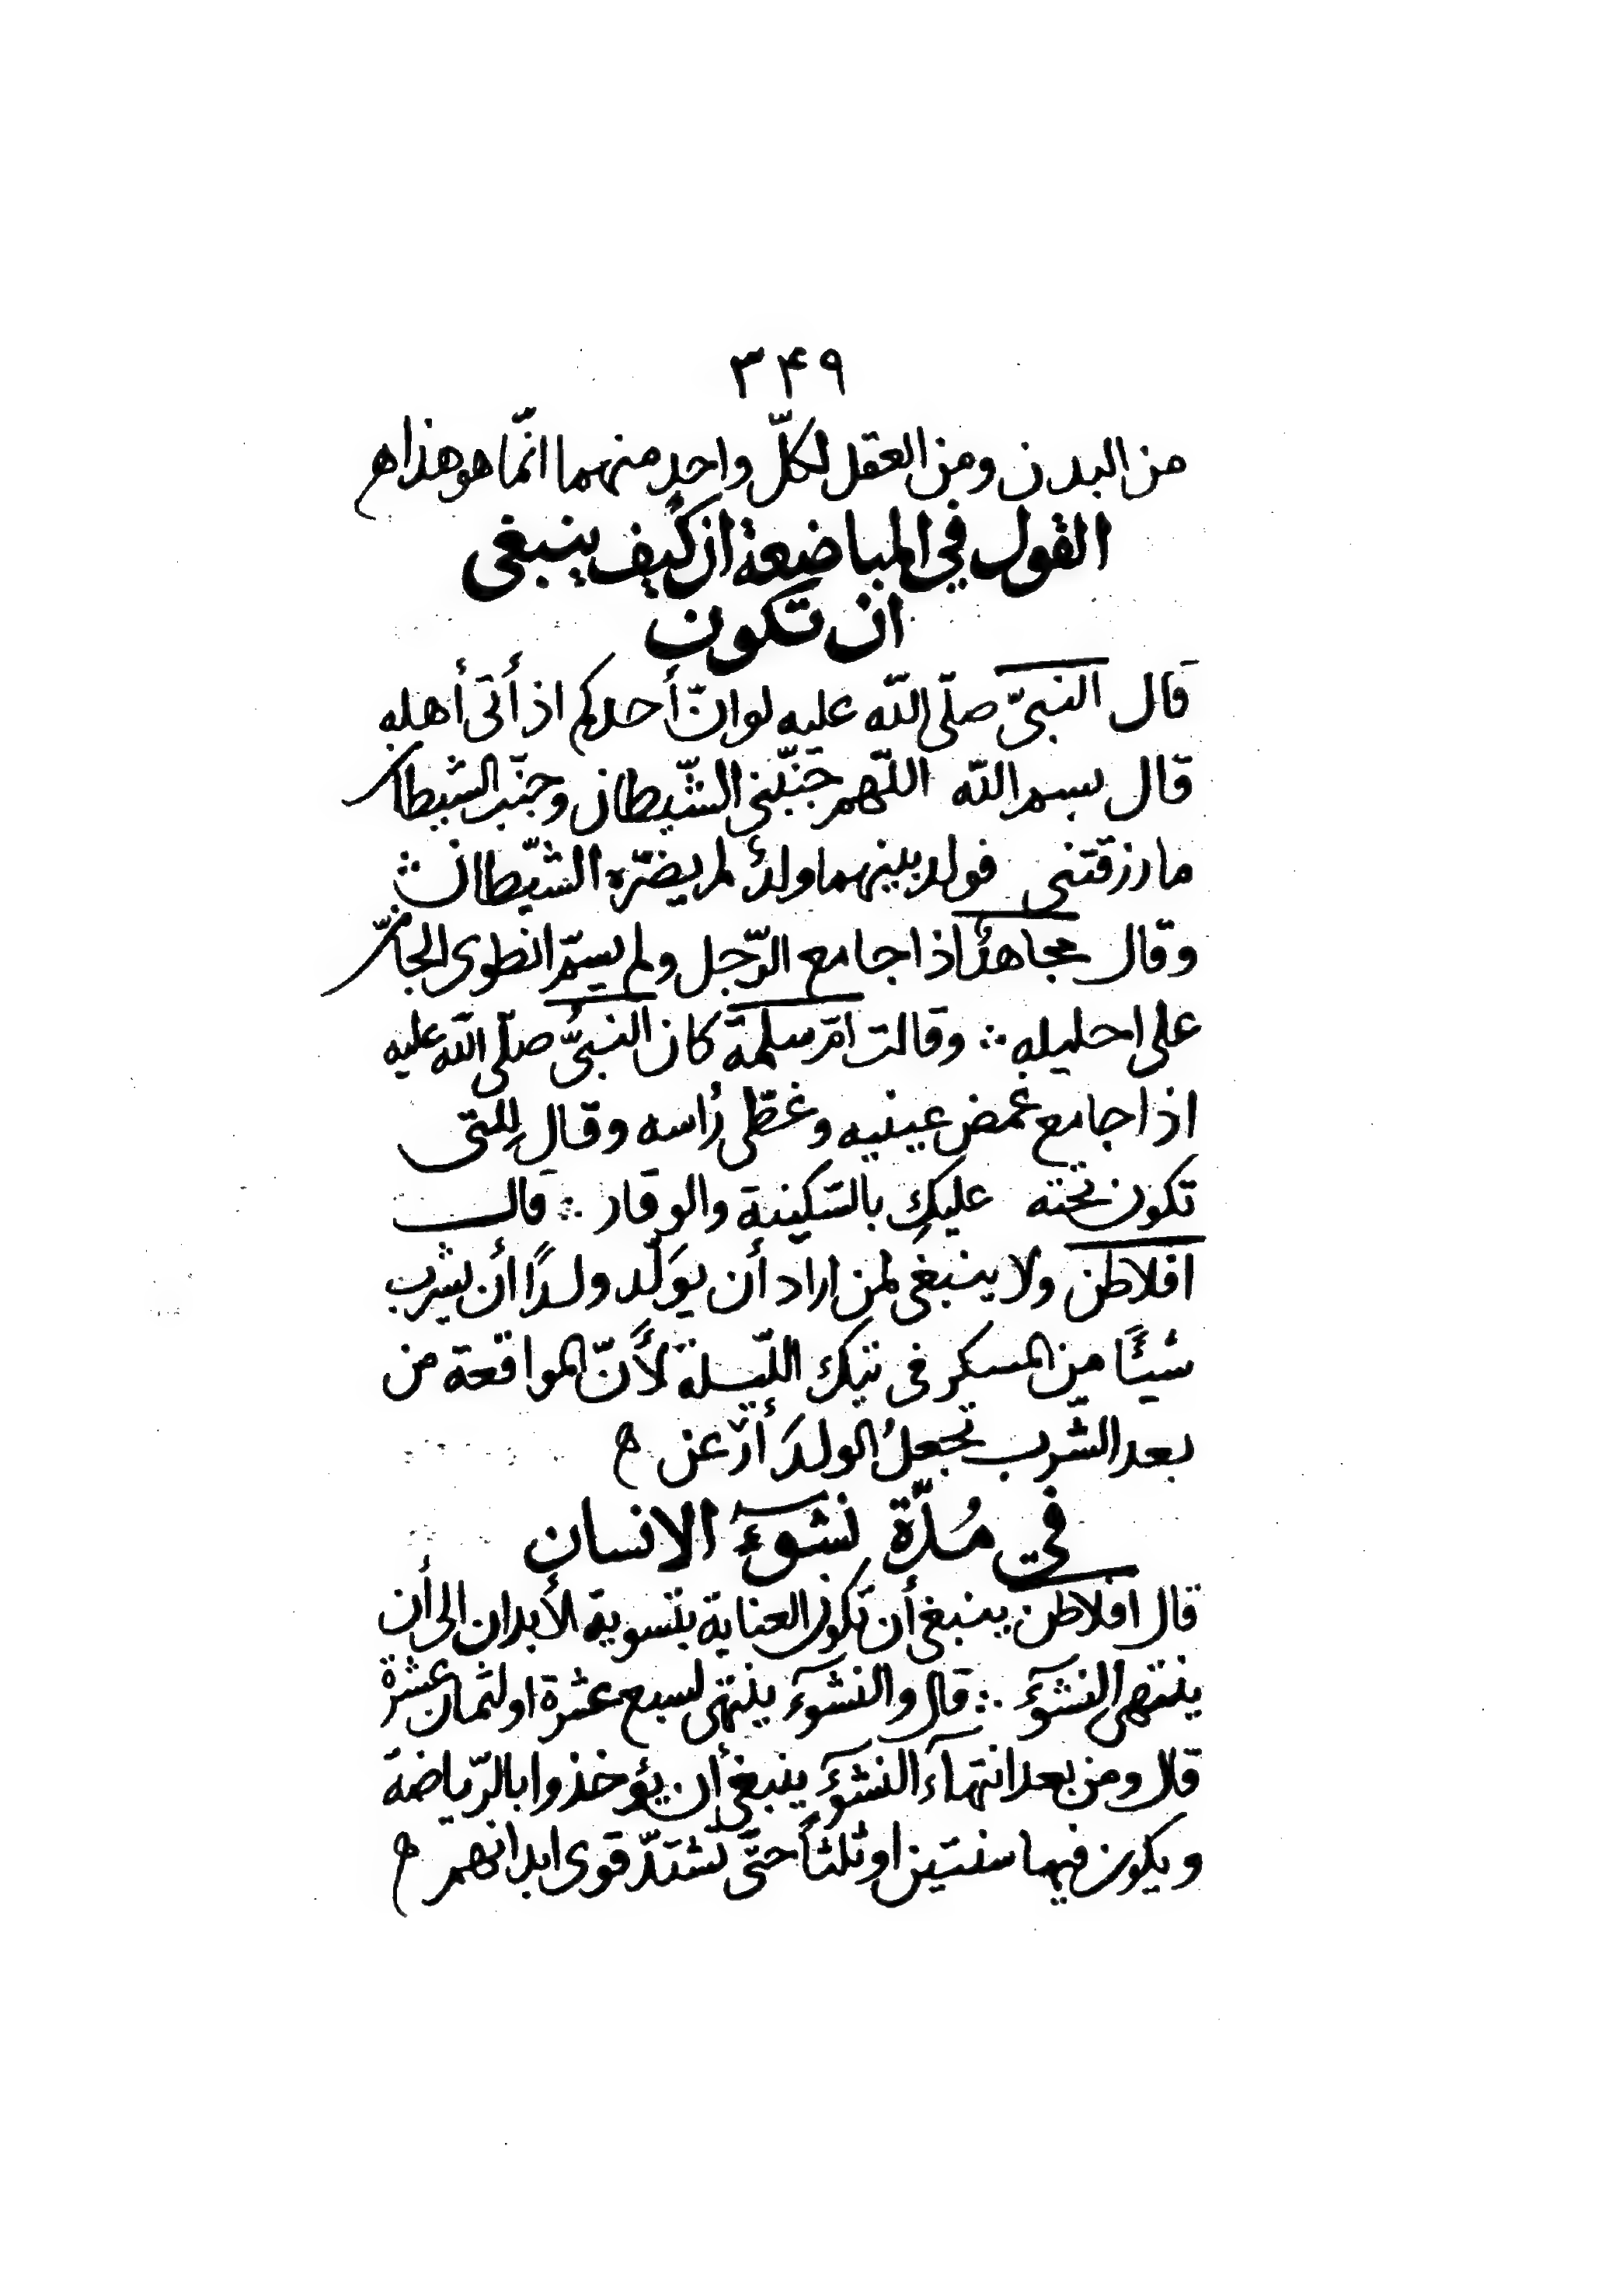 ۳۴۹
من البدن ومن العقل لكلّ واحد منهما انّما هو هذا ه
القول في المباضعة ان كيف ينبغى
ان تكون
قال النبىّ صلّى الله عليه لو انّ أحدكم اذ أتى أهله
قال بسم الله اللّهم جنّبنى الشّيطان وجنّب الشيطان
ما رزقتنى فولد بينهما ولدٌ لم يضرّه الشّيطان ∴
وقال مجاهدٌ اذا جامع الرّجل ولم يسمّ انطوى الجانّ
على احليله ∴ وقالت امّ سلمة كان النبىُّ صلّى الله عليه
اذا جامع غمض عينيه وغطّى رأسه وقال للتى
تكون تحته عليكِ بالسّكينة والوقار ∴ قال
افلاطن ولا ينبغى لمن اراد أن يوَلّد ولدًا أن يشرب
شيئًا من المسكر فى تيك اللّيلة لأنّ المواقعة من
بعد الشّرب تجعلُ الولدَ أرْعن ه
في مُدّة نشوءَ الانسان
قال افلاطن ينبغى أن تكون العناية بتسوية الأبدان الى أن
ينتهى النشوءَ ∴ قال والنشوءَ ينتهى لسبع عشرة او لثمان عشرة
قال ومن بعد انتهاء النشوءَ ينبغى أن يؤخذوا بالرّياضة
ويكون فيها سنتين او ثلثاً حتّى تشتدّ قوى ابدانهم ه